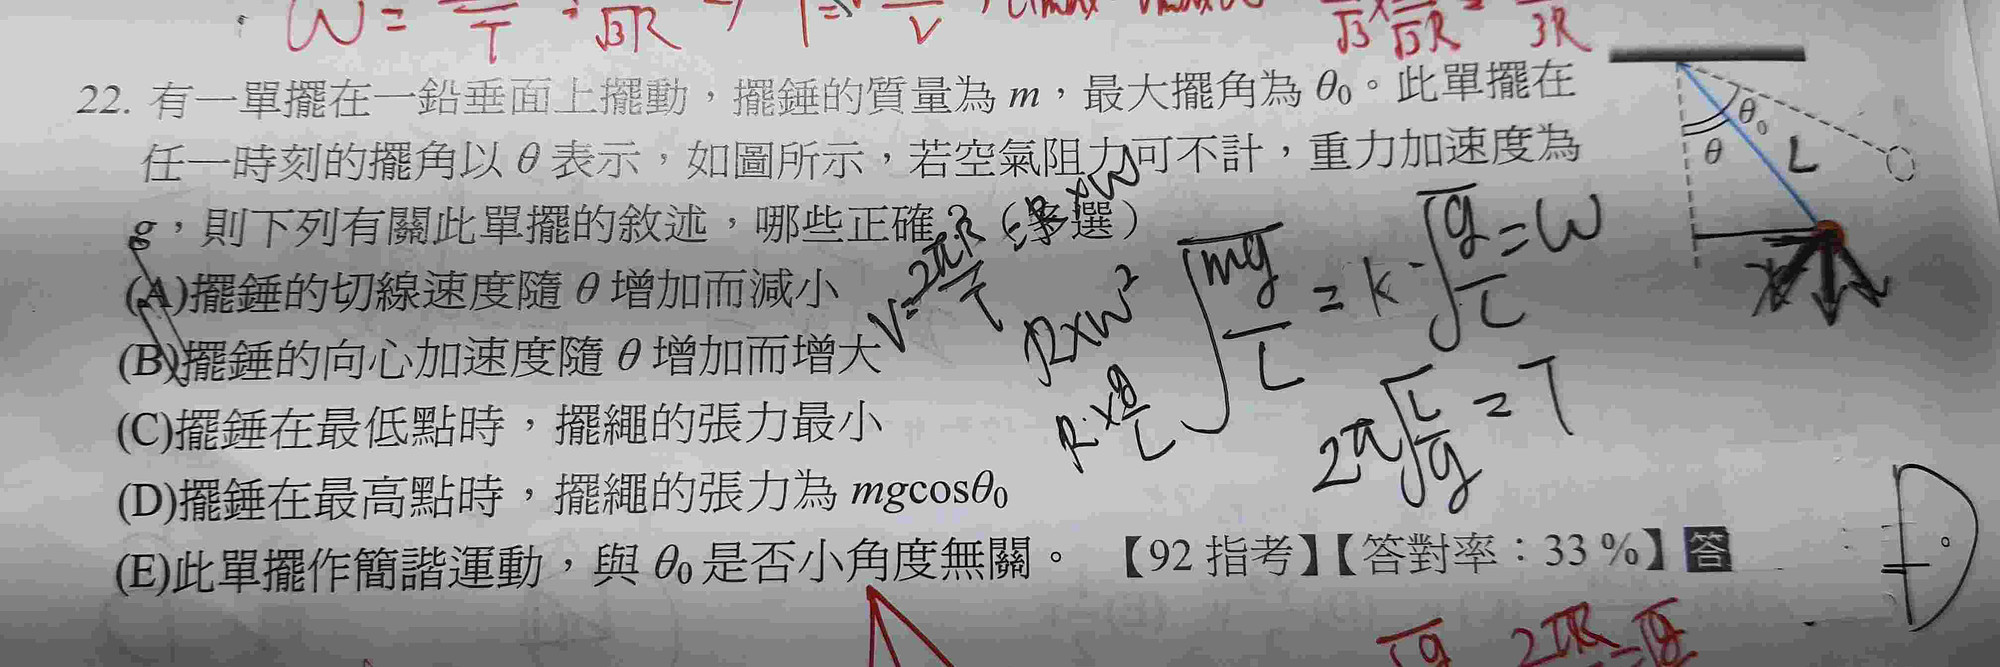 22. 有一單擺在一鉛垂面上擺動，擺錘的質量為 m，最大擺角為 θ₀。此單擺在
任一時刻的擺角以 θ 表示，如圖所示，若空氣阻力可不計，重力加速度為
g，則下列有關此單擺的敘述，哪些正確？（多選）
(A)擺錘的切線速度隨 θ 增加而減小
(B)擺錘的向心加速度隨 θ 增加而增大
(C)擺錘在最低點時，擺繩的張力最小
(D)擺錘在最高點時，擺繩的張力為 mgcosθ₀
(E)此單擺作簡諧運動，與 θ₀ 是否小角度無關。【92 指考】【答對率：33 %】答
θ₀
θ
L
V=2πR/T
R×W²
R×g/L
√mg/L = K
√g/L = W
2π√L/g = T